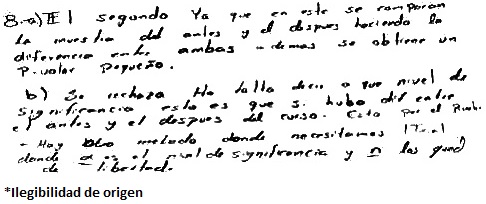 8.-a) El segundo Ya que en este se comparan
la muestra del antes y el despues haciendo la
diferencia entre ambas demas se obtiene un
P-valor Pequeño.
b) Se rechaza Ho falta a que nivel de
significancia esto es que si hubo dif entre
el antes y el despues del curso. Esto por el
- Hay otro metodo donde necesitamos
donde α es el nivel de significancia y n los
de libertad.
*Ilegibilidad de origen